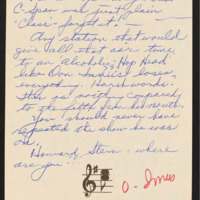 C-Span was first plain
"Class" - forget it! -
Any station that would
give all that air time
to an Alcoholic, Hop Head
like Don Imus is losses,
everyone - Harsh words?
this is nothing compared
to the filth from his mouth.
You should never have
repeated the show he was
on.
Howard Stern - where
are you!!
O - Imus